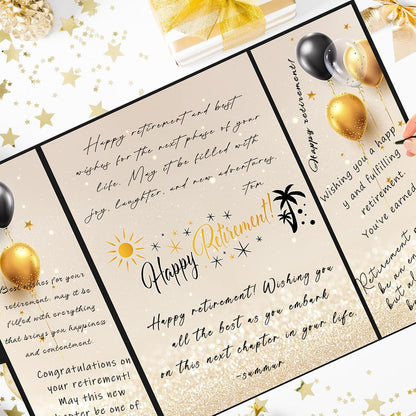 Happy retirement and best
wishes for the next phase of your
life. May it be filled with
joy, laughter, and new adventures.
Tom
Happy Retirement!
Happy retirement! Wishing you
all the best as you embark
on this next chapter in your life.
-summur
Best wishes for your
retirement, may it be
filled with everything
that brings you happiness
and contentment.
Congratulations on
your retirement!
May this new
chapter be one of
Happy retirement!
Wishing you a happ
y and fulfilling
retirement.
You've earn
Retirement
be an en
but a